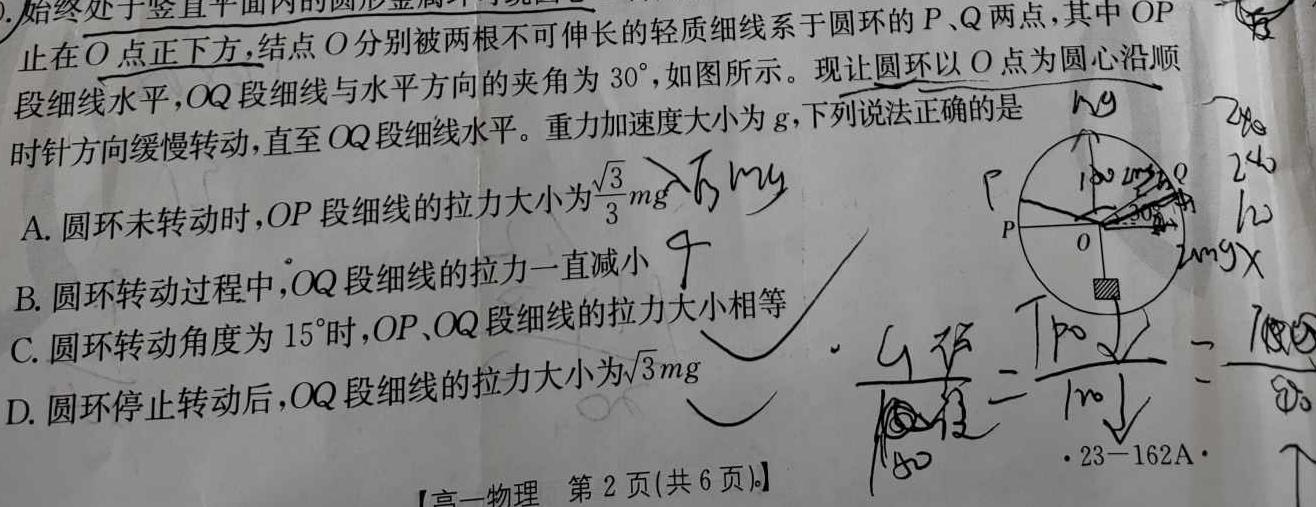 始终处于竖直平面内的圆形金属环可绕圆心
止在O点正下方,结点O分别被两根不可伸长的轻质细线系于圆环的P、Q两点,其中OP
段细线水平,OQ段细线与水平方向的夹角为30°,如图所示。现让圆环以O点为圆心沿顺
时针方向缓慢转动,直至OQ段细线水平。重力加速度大小为g,下列说法正确的是
A. 圆环未转动时,OP段细线的拉力大小为√3/3 mg
B. 圆环转动过程中,OQ段细线的拉力一直减小
C. 圆环转动角度为15°时,OP、OQ段细线的拉力大小相等
D. 圆环停止转动后,OQ段细线的拉力大小为√3mg
mg
P
Q
P
O
30°
240
240
120
2mg
·23-162A·
【高一物理 第2页(共6页)】